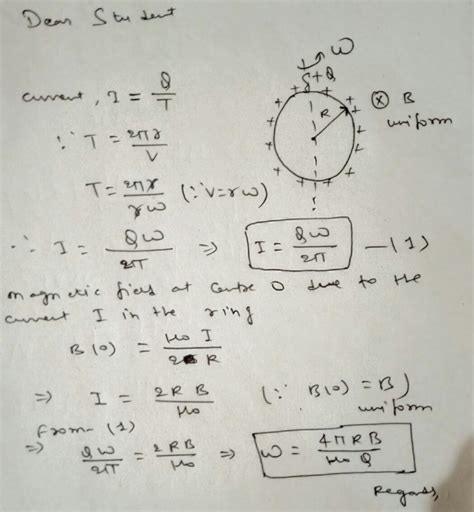 Dear Student
ω
+Q
current, I = Q/T
R
⊗ B
uniform
∵ T = 2πr/V
T = 2πr/rω (∵ V = rω)
∴ I = Qω/2π ⇒ I = Qω/2π —(1)
magnetic field at centre O due to the
current I in the ring
B(0) = μ₀ I/2 R
⇒ I = 2RB/μ₀ (∵ B(0) = B)
uniform
from (1)
⇒ Qω/2π = 2RB/μ₀ ⇒ ω = 4πRB/μ₀ Q
Regards,